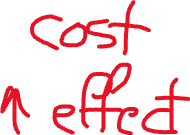 cost
↑ effect